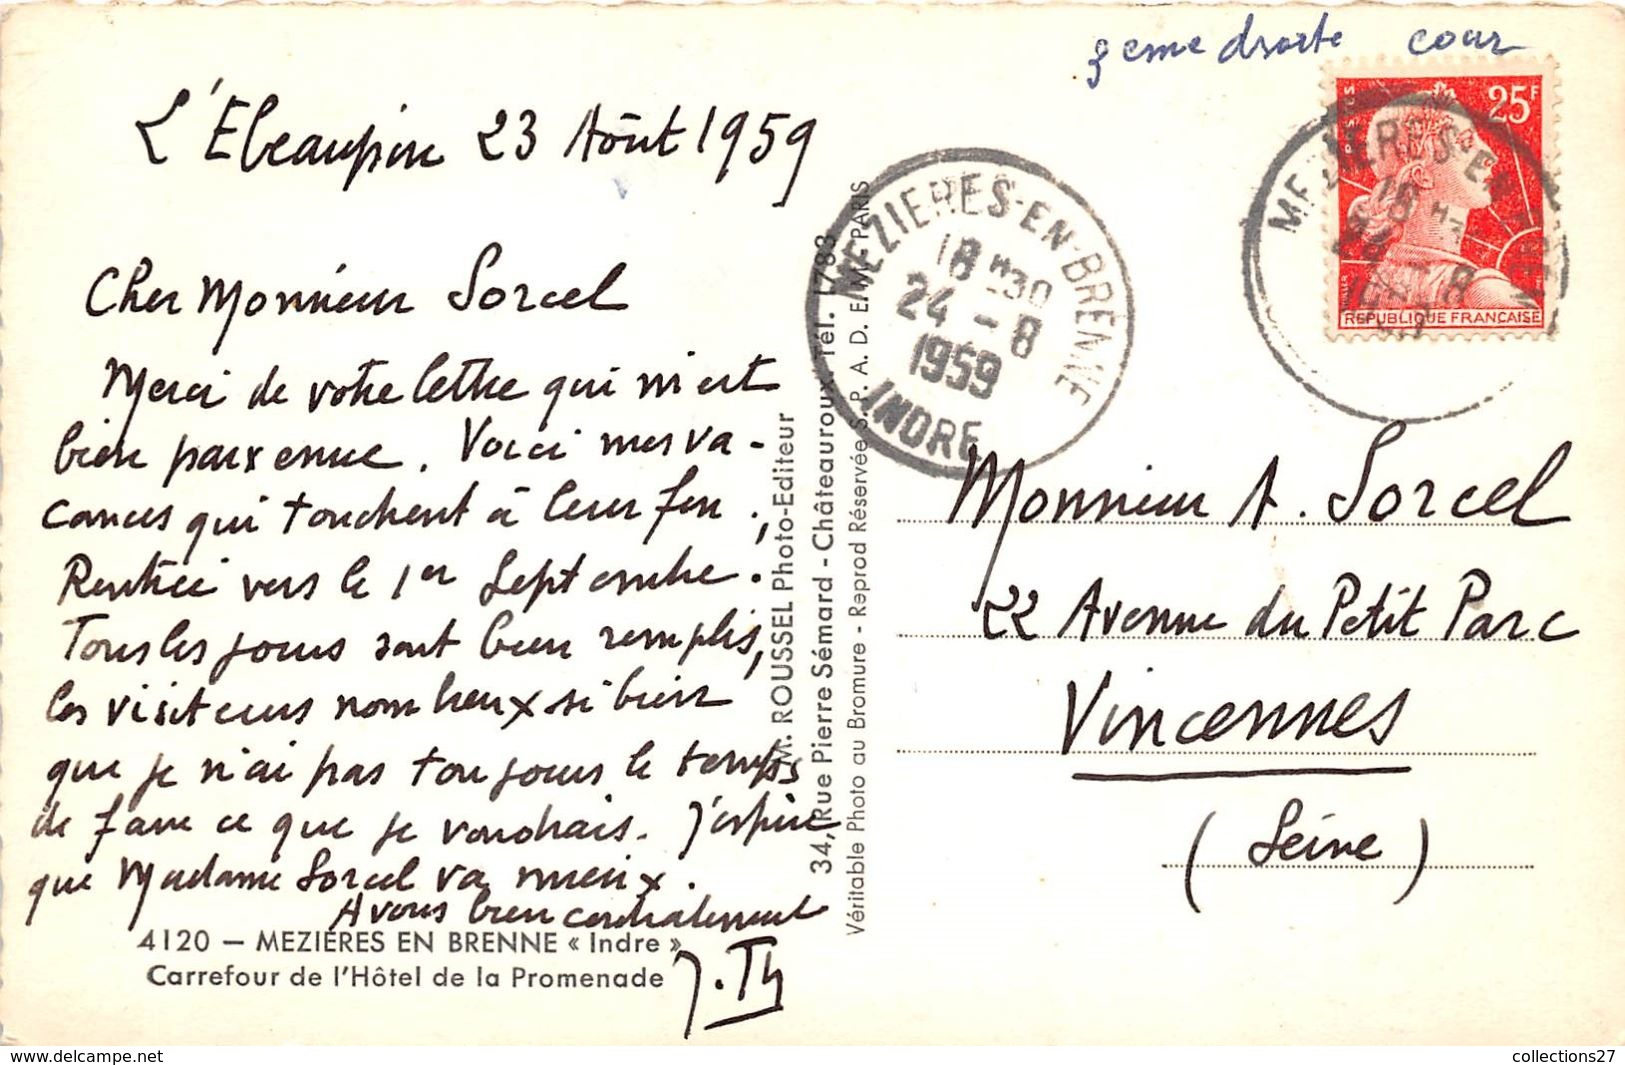 3eme droite cour
L'Ebeaupin 23 Août 1959
Cher Monsieur Sorcel
Merci de votre lettre qui m'est
bien parvenue. Voici mes va-
cances qui touchent à leur fin.,
Rentrée vers le 1er Septembre.
Tous les jours sont bien remplis,
les visiteurs nombreux si bien
que je n'ai pas toujours le temps
de faire ce que je voudrais. J'espère
que Madame Sorcel va mieux.
A vous bien cordialement
J. Th
4120 – MEZIÈRES EN BRENNE « Indre »
Carrefour de l'Hôtel de la Promenade
M. ROUSSEL Photo-Editeur
34, Rue Pierre Sémard - Châteauroux - Tél. 1783
Véritable Photo au Bromure - Reprod Réservée S. P. A. D. E. M. PARIS
MEZIERES-EN-BRENNE
18H30
24 - 8
1959
INDRE
POSTES
25F
REPUBLIQUE FRANÇAISE
MEZIERES-EN-BRENNE
18H30
24 - 8
1959
Monsieur A. Sorcel
22 Avenue du Petit Parc
Vincennes
(Seine)
collections27